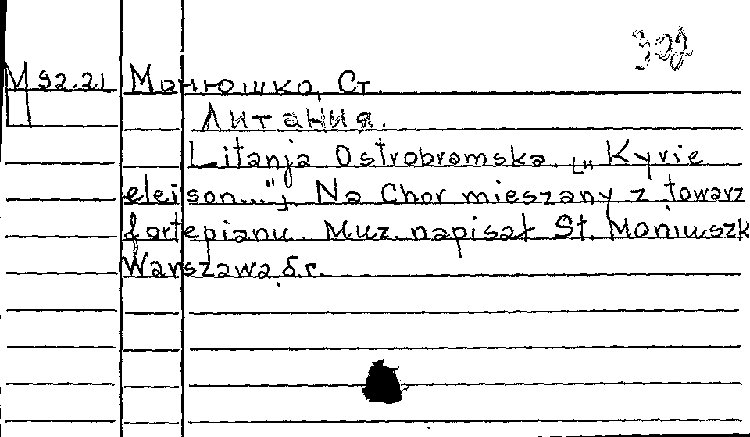 302
М 92.21 Монюшко, Ст.
Литания.
Litanja Ostrobramska. [„Kyrie
eleison..."]. Na Chor mieszany z towarz
fortepianu. Muz. napisał St. Moniuszk
Warszawa, б.г.